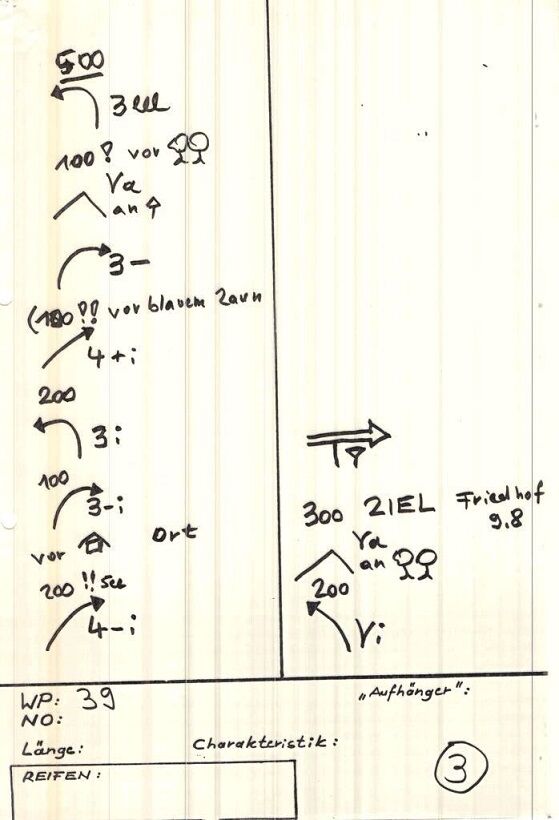 500
3 lll
100 ! vor
Va
an
3 -
(100 !! vor blauem Zaun
4 + i
200
3 i
100
3 - i
vor Ort
200 !! See
4 - i
300 ZIEL Friedhof
9,8
Va
an
200
Vi
WP: 39
NO:
„Aufhänger":
Länge: Charakteristik:
REIFEN:
3